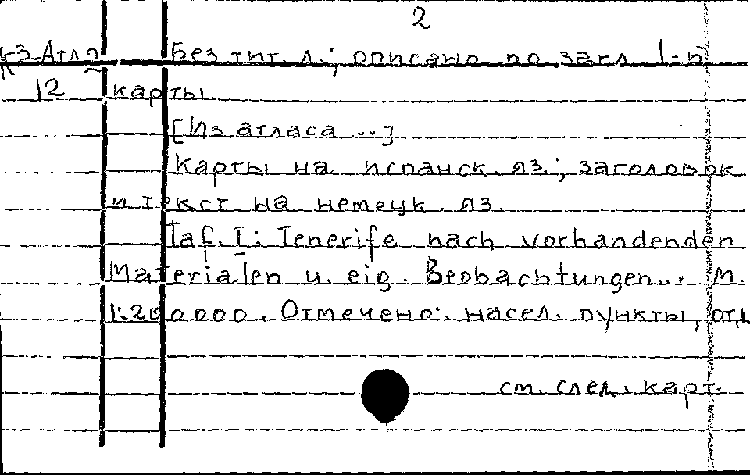 2
КЗ Атл Без тит. л.; описано по загл. 1-й
12 карты
[Из атласа ...]
Карты на испанск. яз.; заголовок
и текст на немецк. яз.
Taf. I: Tenerife nach vorhandenden
Materialen u. eig. Beobachtungen... М.
1:200000. Отмечено: насел. пункты, отд
см. след. карт.